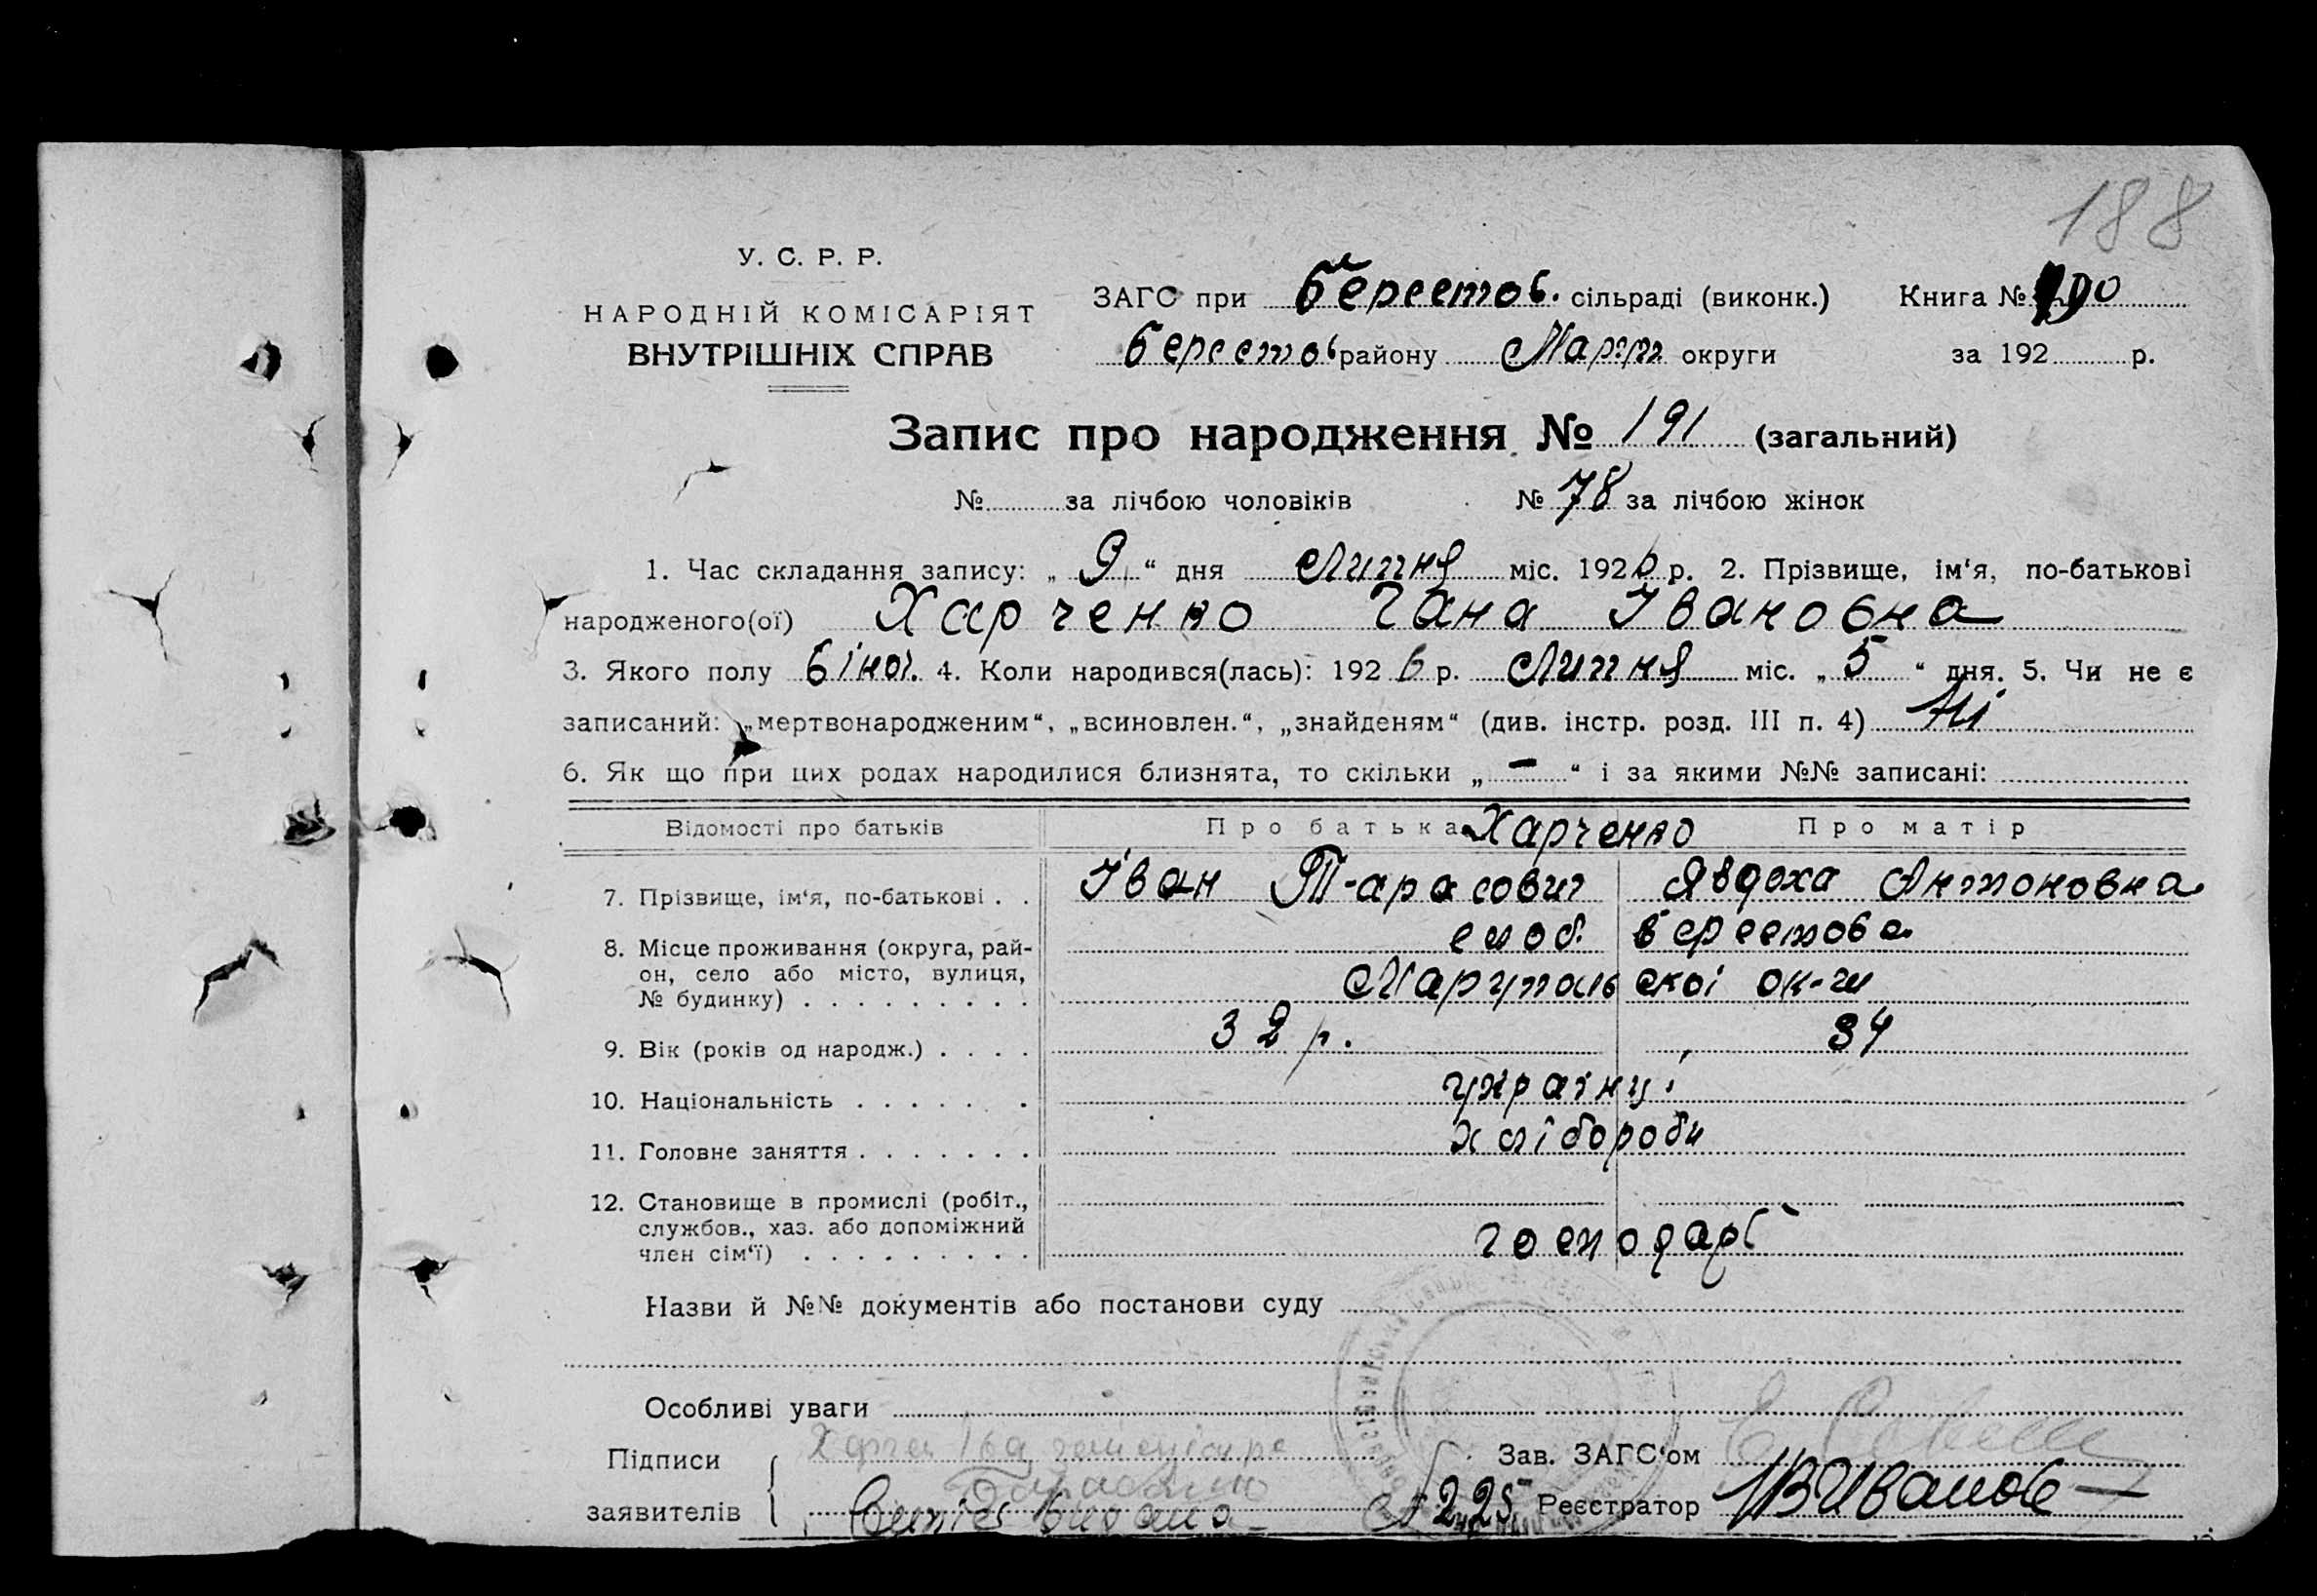 188
У. С. Р. Р.
НАРОДНІЙ КОМІСАРІЯТ
ВНУТРІШНІХ СПРАВ
ЗАГС при Берестов. сільраді (виконк.) Книга №
Берестов району Марп округи за 192 р.
Запис про народження № 191 (загальний)
№ за лічбою чоловіків № 78 за лічбою жінок
1. Час складання запису: „ 9 “ дня Липня міс. 1926 р. 2. Прізвище, ім‘я, по-батькові
народженого(ої) Харченко Гана Івановна
3. Якого полу біноі. 4. Коли народився(лась): 192 6 р. Липня міс. „ 5 “ дня. 5. Чи не є
записаний: „мертвонародженим“, „всиновлен.“, „знайденям“ (див. інстр. розд. III п. 4) Ні
6. Як що при цих родах народилися близнята, то скільки „ — “ і за якими №№ записані:
Відомості про батьків Про батька Харченко Про матір
7. Прізвище, ім‘я, по-батькові . . Іван Тарасович Явдоха Антоновна
8. Місце проживання (округа, рай- слоб. Берестова
он, село або місто, вулиця, Маріупольскоі ок-ги
№ будинку) . . . . . . . . .
9. Вік (років од народж.) . . . . 32 р. 34
10. Національність . . . . . . . українці
11. Головне заняття . . . . . . . хлібороби
12. Становище в промислі (робіт.,
службов., хаз. або допоміжний
член сім‘ї) . . . . . . . . . господарі
Назви й №№ документів або постанови суду
Особливі уваги
Підписи
Зав. ЗАГС‘ом
заявителів
225 Реєстратор Иванов